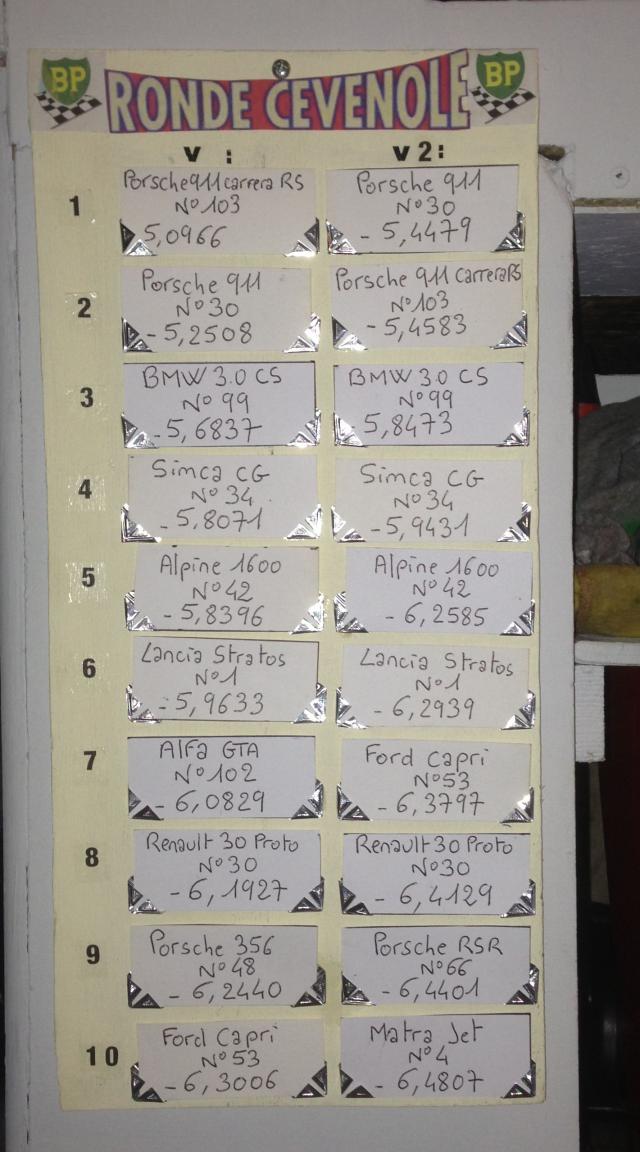 BP RONDE CEVENOLE BP
V : V 2:
1
Porsche 911 carrera RS
N° 103
5,0966
Porsche 911
N° 30
- 5,4479
2
Porsche 911
N° 30
- 5,2508
Porsche 911 CarreraRS
N° 103
- 5,4583
3
BMW 3.0 CS
N° 99
- 5,6837
BMW 3.0 CS
N° 99
5,8473
4
Simca CG
N° 34
- 5,8071
Simca CG
N° 34
- 5,9431
5
Alpine 1600
N° 42
- 5,8396
Alpine 1600
N° 42
- 6,2585
6
Lancia Stratos
N° 1
- 5,9633
Lancia Stratos
N° 1
- 6,2939
7
Alfa GTA
N° 102
- 6,0829
Ford Capri
N° 53
- 6,3797
8
Renault 30 Proto
N° 30
- 6,1927
Renault 30 Proto
N° 30
- 6,4129
9
Porsche 356
N° 48
- 6,2440
Porsche RSR
N° 66
- 6,4401
10
Ford Capri
N° 53
- 6,3006
Matra Jet
N° 4
- 6,4807